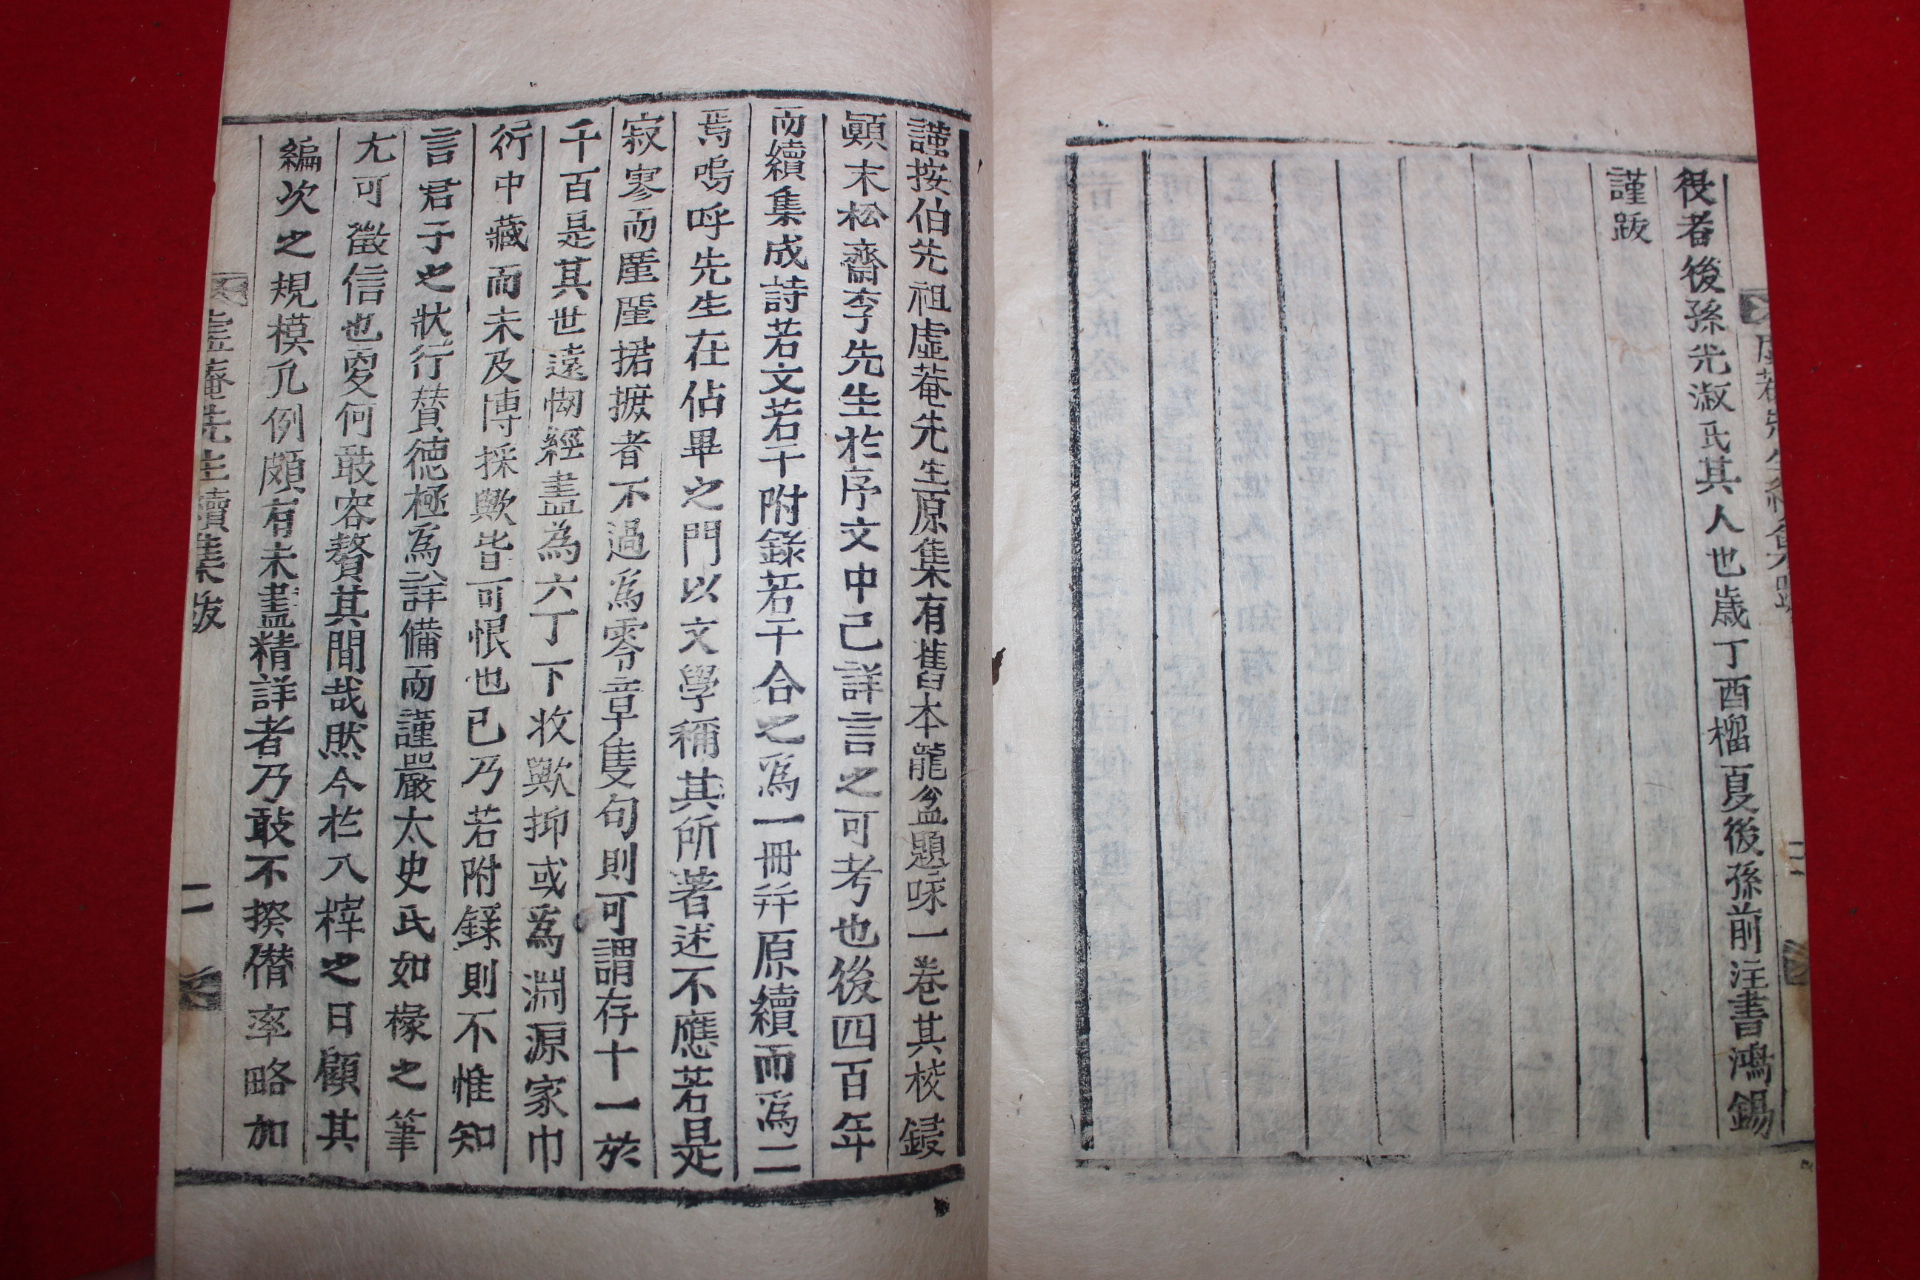 役者後孫光淑氏其人也歲丁酉榴夏後孫前注書鴻錫
謹跋
謹按伯先祖虛菴先生原集有舊本籠盆題咏一卷其校鋟
顚末松齋李先生於序文中已詳言之可考也後四百年
而續集成詩若文若干附錄若干合之爲一冊幷原續而爲二
焉嗚呼先生在佔畢之門以文學稱其所著述不應若是
寂寥而厪厪捃摭者不過爲零章隻句則可謂存十一於
千百是其世遠刼經盡為六丁下收歟抑或爲淵源家巾
衍中藏而未及博採歟皆可恨也已乃若附錄則不惟知
言君子之狀行贊德極爲詳備而謹嚴太史氏如椽之筆
尤可徵信也更何敢容贅其間哉然今於入梓之日顧其
編次之規模凡例頗有未盡精詳者乃敢不揆僭率略加
虛菴先生續集跋
二